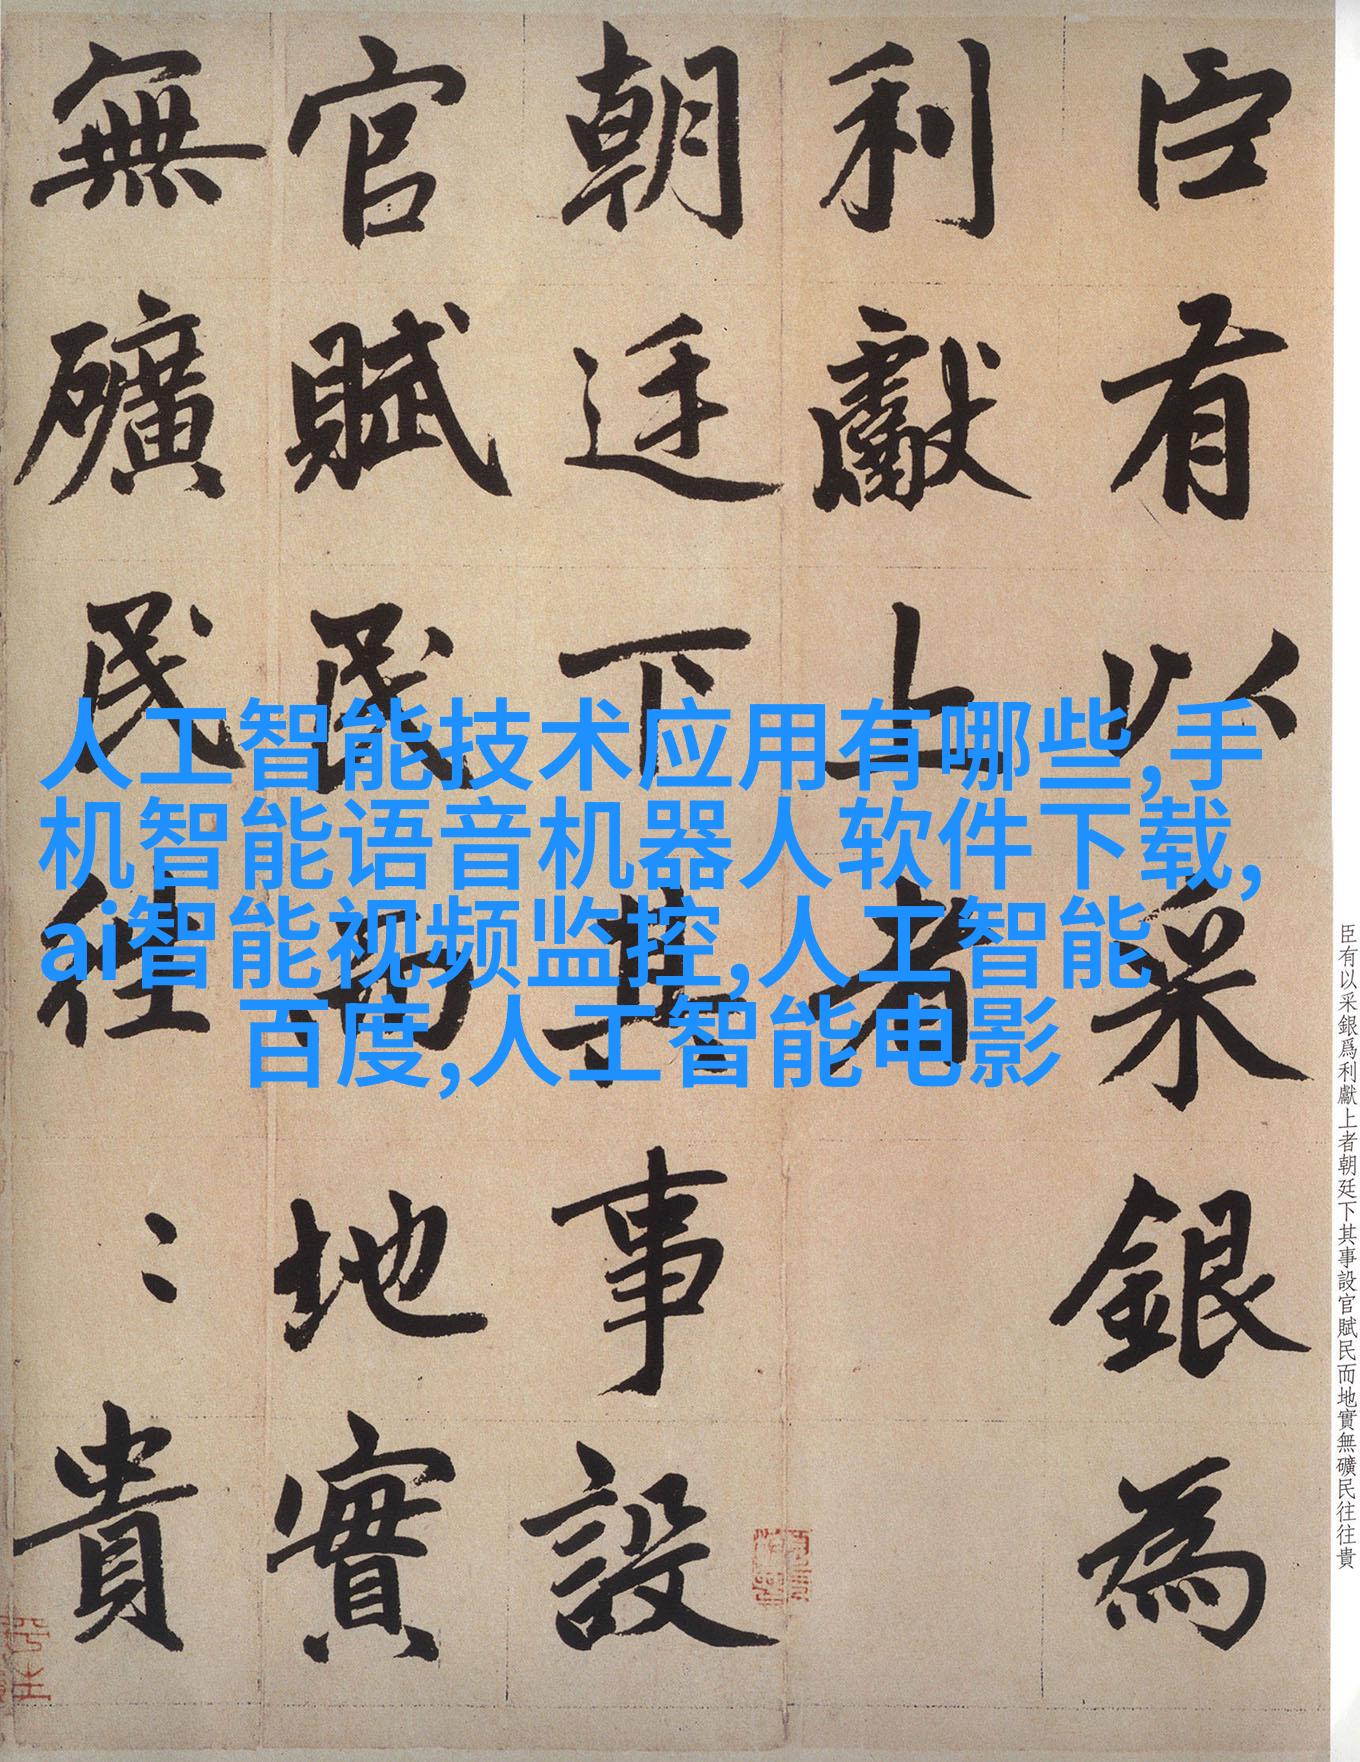 臣有以采銀為
利獻上者
朝廷下其事設
官賦民而地實
無礦民往〻貴
人工智能技术应用有哪些,手
机智能语音机器人软件下载,
ai智能视频监控,人工智能
百度,人工智能电影
臣有以采銀爲利獻上者朝廷下其事設官賦民而地實無礦民往往貴